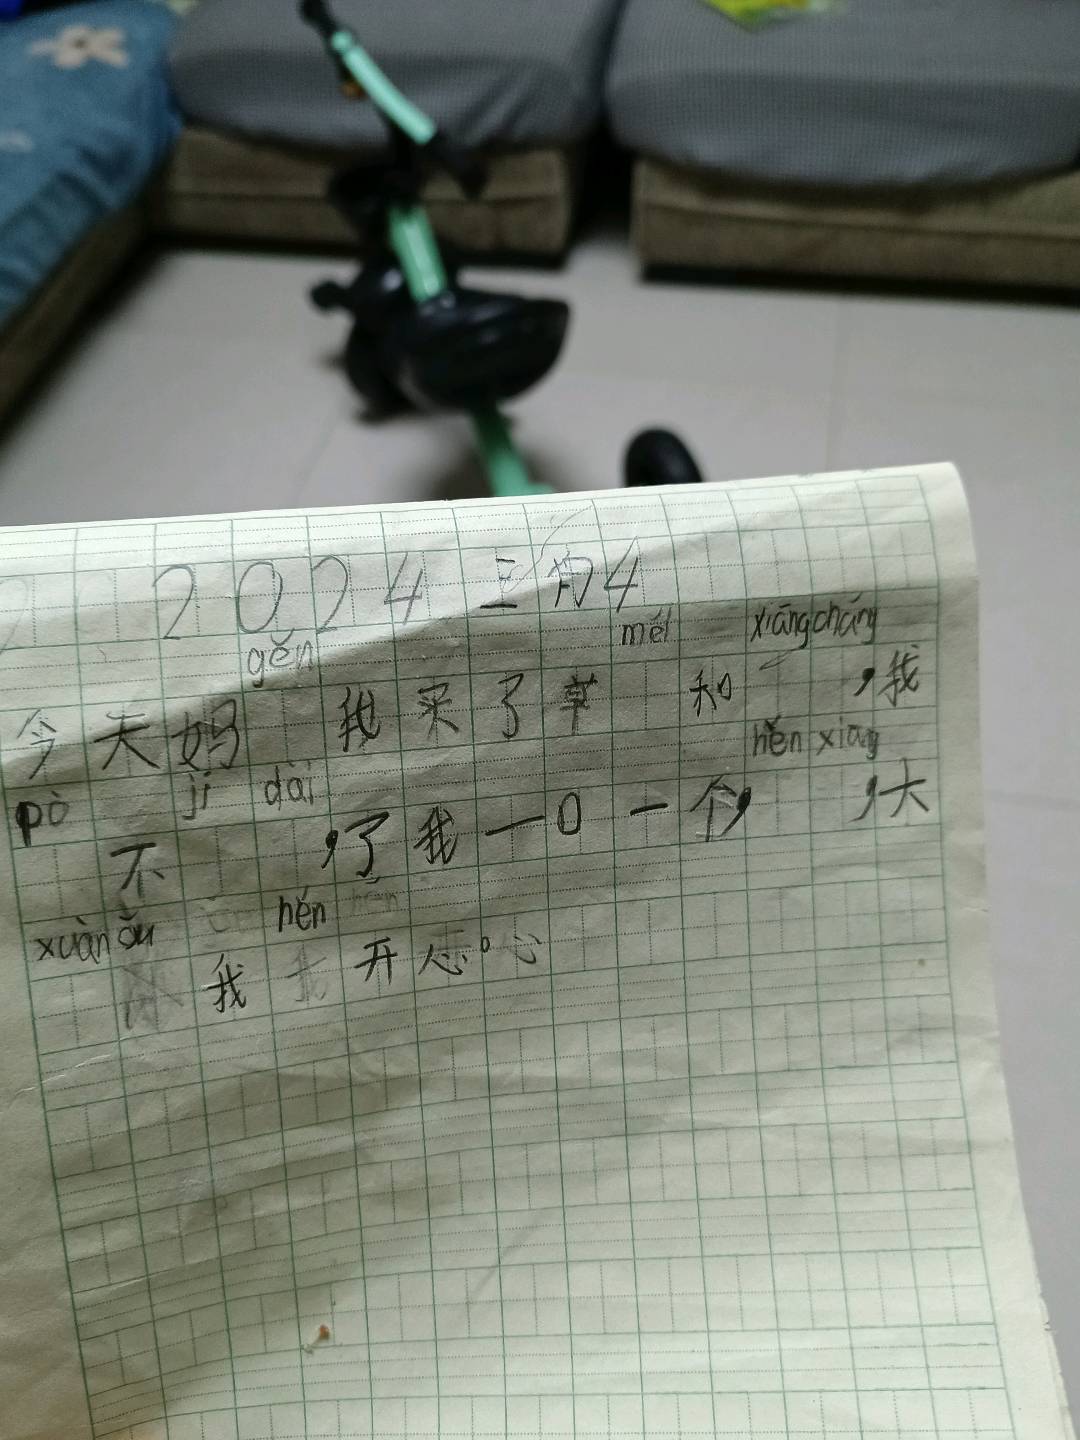 2024三月4
gěn měi xiāngcháng
今天妈 我来了草 和 ,我
pò jí dài hěn xiāng
不 ,了我一口一个, ,大
xuàn ǎu hěn
我 开心。